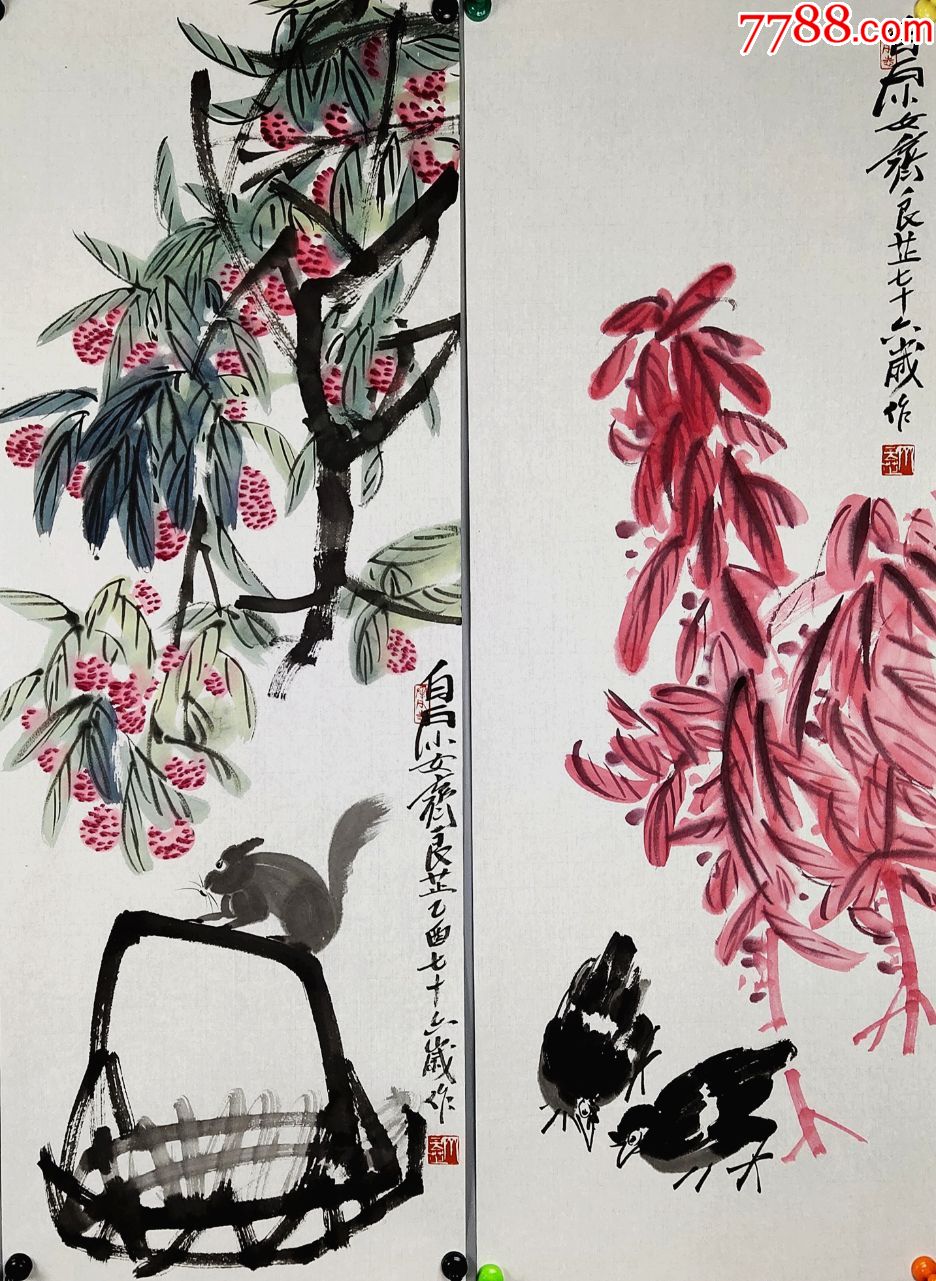 7788.com
白石小女齊良芷七十六歲作
白石小女齊良芷乙酉七十六歲作